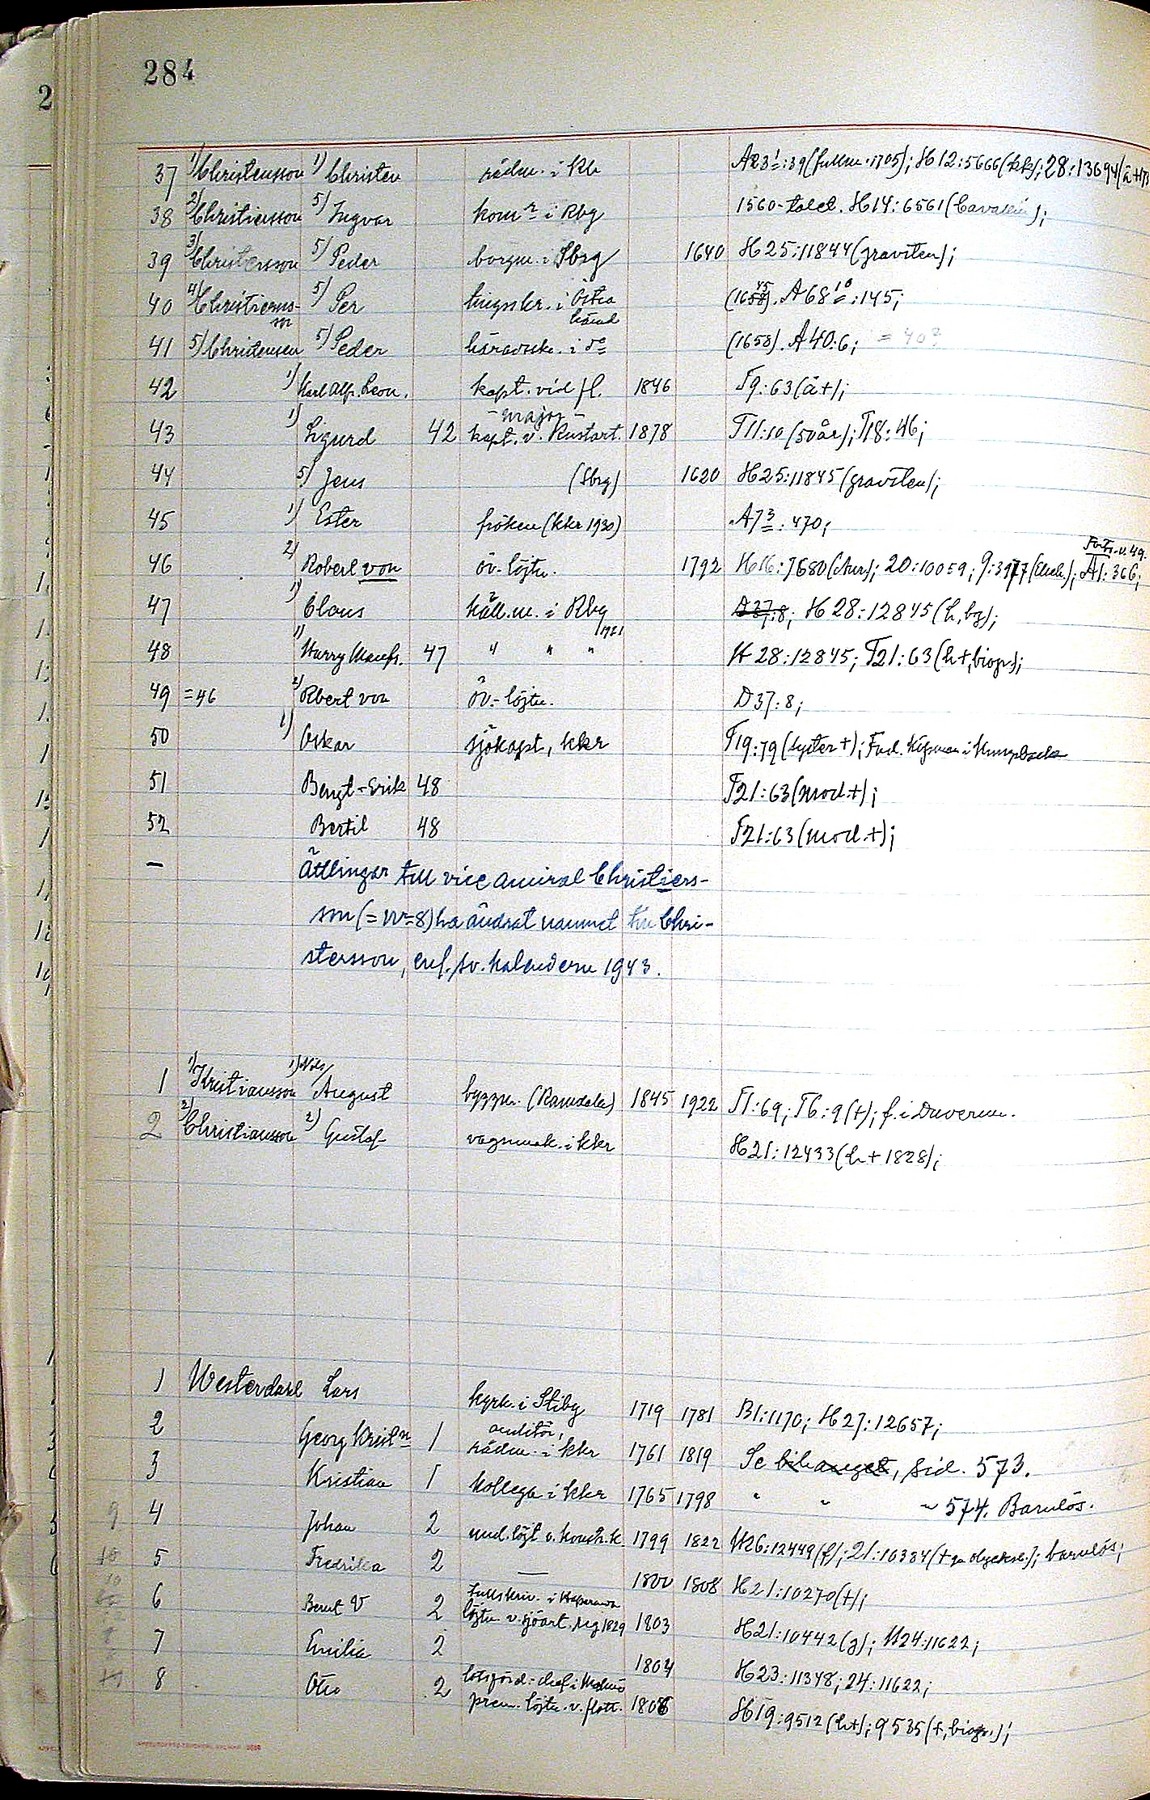 284
37 1) Christensson 1) Christen rådm. i Kh A231:39 (fullm. 1705); H12:5666 (kfs); 28:13694 (ä+173
38 2) Christiersson 5) Ingvar komr i Rbg 1560-talet. H14:6561
39 3) Christersson 5) Peder borgm. i Sbrg 1640 H25:11844 (gravsten);
40 4) Christierns- 5) Per tingsskr. i Östra (1658). A68 10:145;
son härad
41 5) Christensen 5) Peder häradsskr. i do (1658). A40:6; = 40?
42 1) Karl Alf. Leon. kapt. vid fl. 1846 T9:63 (ä+);
- major -
43 1) Sigurd 42 kapt. v. Kustart. 1878 T11:10 (50 år); T18:46;
44 5) Jens (Sbrg) 1620 H25:11845 (gravsten);
45 1) Ester fröken (Kkr 1930) A73:470;
Forts. n. 49.
46 2) Robert von öv.-löjtn. 1792 H16:7680; 20:10059; 9:3977; A1:366;
47 1) Claus håll.m. i Rbg D37:8; H28:12845 (h, bg);
1921
48 1) Harry Manfr. 47 " " " H28:12845; T21:63 (h+, biogr);
49 =46 2) Rbert von öv.-löjtn. D37:8;
50 1) Oskar sjökapt, kkr T19:79 (syster +); Fad. i
51 Bengt-Erik 48 T21:63 (mod +);
52 Bertil 48 T21:63 (mod. +);
— Ättlingar till vice amiral Christiers-
son (= nr 8) ha ändrat namnet till Chri-
stersson, enl. sv. kalendern 1943.
1 1) Kristiansson 1) Nils/ August byggm. (Ramdala) 1845 1922 T1:69; T6:9 (+); f. i
2 2) Christiansson 2) Gustaf vagnmak. i kkr H21:12433 (h + 1828);
1 Westerdahl Lars kyrk. i Stiby 1719 1781 B1:1170; H27:12657;
auditör,
2 Georg Kristn 1 rådm. i kkr 1761 1819 Se bihanget, sid. 573.
3 Kristian 1 kollega i kkr 1765 1798 " " ~ 574. Barnlös.
9 4 Johan 2 und. löjt v. 1799 1822 H26:12449 (f); 21:10384 (+ gm olycksh.); barnlös;
10 5 Fredrika 2 — 1800 1808 H21:10270 (+);
6 Bernt V 2 löjtn v. sjöart. reg 1829 1803 H21:10442; H24:11622;
7 Emilia 2 1804 H23:11348; 24:11622;
8 Otto 2 lotsförd. chef i Malmö
prem. löjtn. v. flott. 1806 H19:9512 (h+); 9535 (+, biogr.);